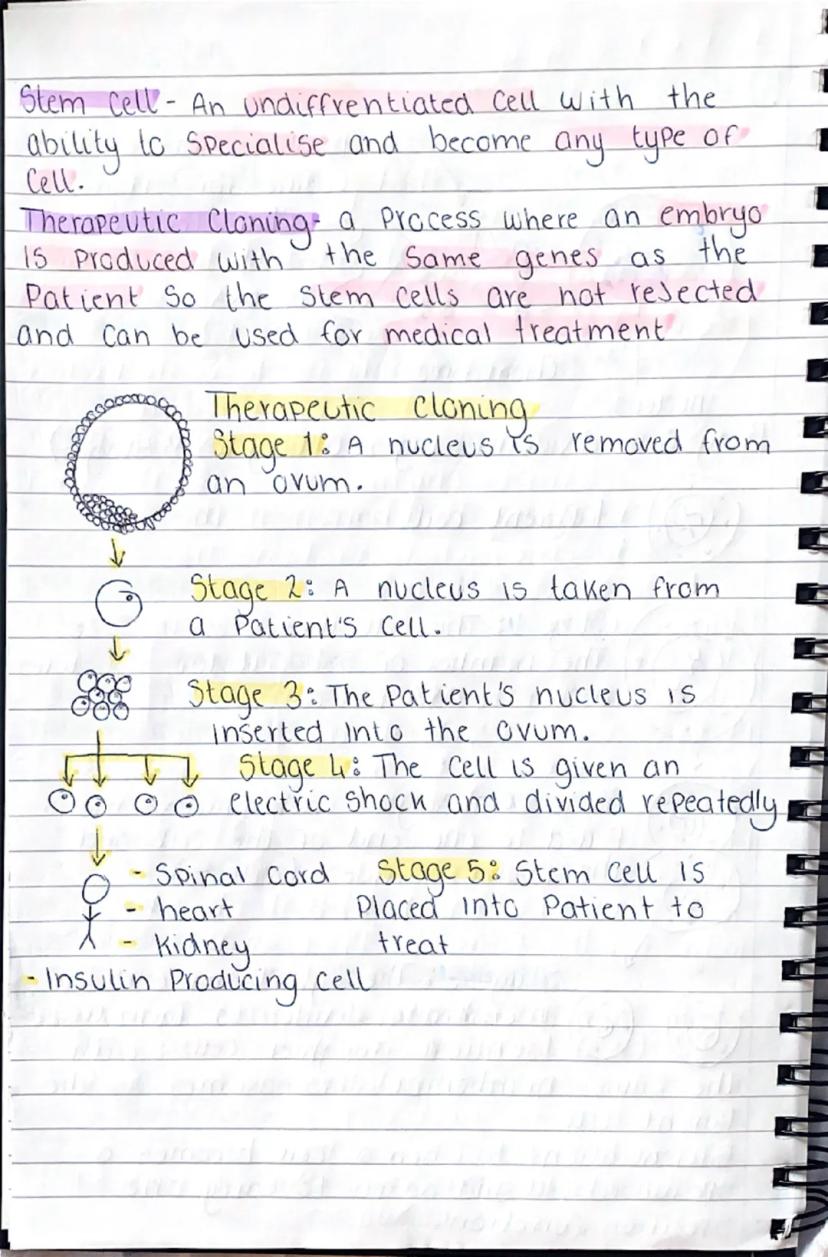 Stem Cell - An undiffrentiated Cell with the
ability to Specialise and become any type of
Cell.
Therapeutic Cloning- a Process where an embryo
is Produced with the Same genes as the
Patient So the Stem Cells are not rejected
and can be used for medical treatment
Therapeutic Cloning
Stage 1: A nucleus is removed from
an ovum.
Stage 2: A nucleus is taken from
a Patient's Cell.
Stage 3: The Patient's nucleus is
inserted into the Ovum.
Stage 4: The Cell is given an
electric Shock and divided repeatedly
- Spinal Cord
- heart
- kidney
- Insulin Producing cell
Stage 5: Stem Cell is
Placed into Patient to
treat